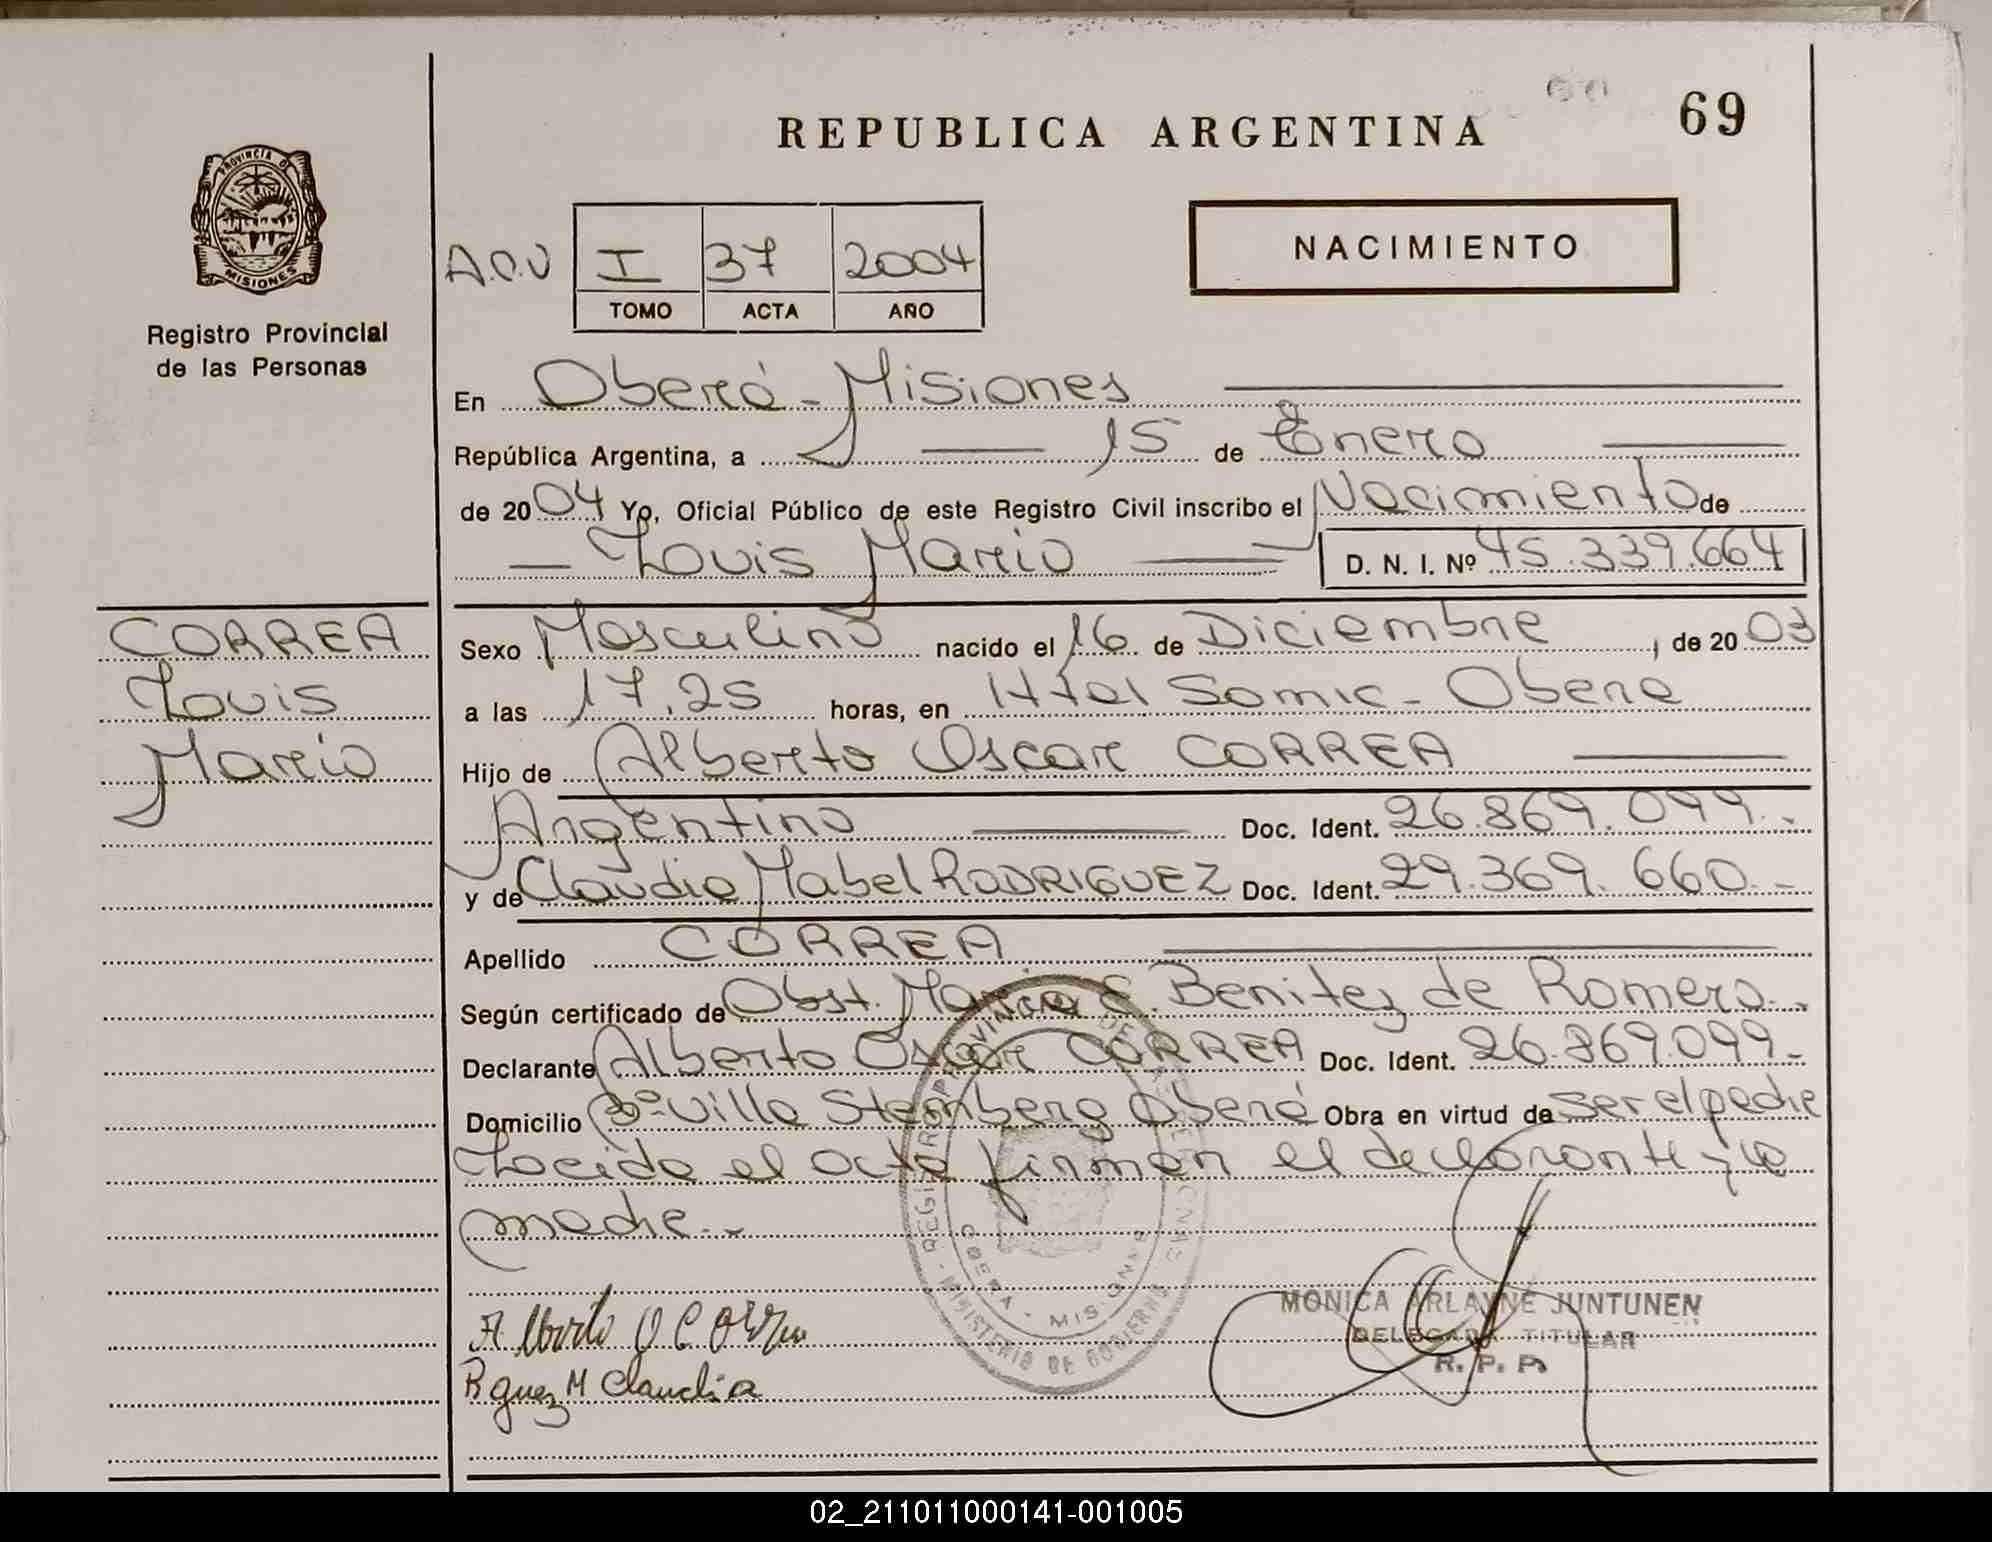 REPUBLICA ARGENTINA
69
PROVINCIA DE
MISIONES
Registro Provincial
de las Personas
A.C.V
I 37 2004
TOMO ACTA AÑO
NACIMIENTO
En Oberá - Misiones
República Argentina, a 15 de Enero
de 2004 Yo, Oficial Público de este Registro Civil inscribo el Nacimiento de
Louis Mario D. N. I. Nº 45.339.664
CORREA
Louis
Mario
Sexo Masculino nacido el 16 de Diciembre, de 2003
a las 17,25 horas, en Htal Samic - Oberá
Hijo de Alberto Oscar CORREA
Argentino Doc. Ident. 26.869.099.-
y de Claudia Mabel RODRIGUEZ Doc. Ident. 29.369.660.-
Apellido CORREA
Según certificado de Obst. Maria E. Benitez de Romero.-
Declarante Alberto Oscar CORREA Doc. Ident. 26.869.099.-
Domicilio Bº Villa Stemberg Oberá Obra en virtud de ser el padre
Leida el acta firman el declarante y la
madre.-
REGISTRO PROVINCIAL DE LAS PERSONAS
OBERA - MISIONES
MINISTERIO DE GOBIERNO
Alberto O Correa
Rguez M Claudia
MONICA ARLAYNE JUNTUNEN
DELEGADA TITULAR
R. P. P.
02_211011000141-001005